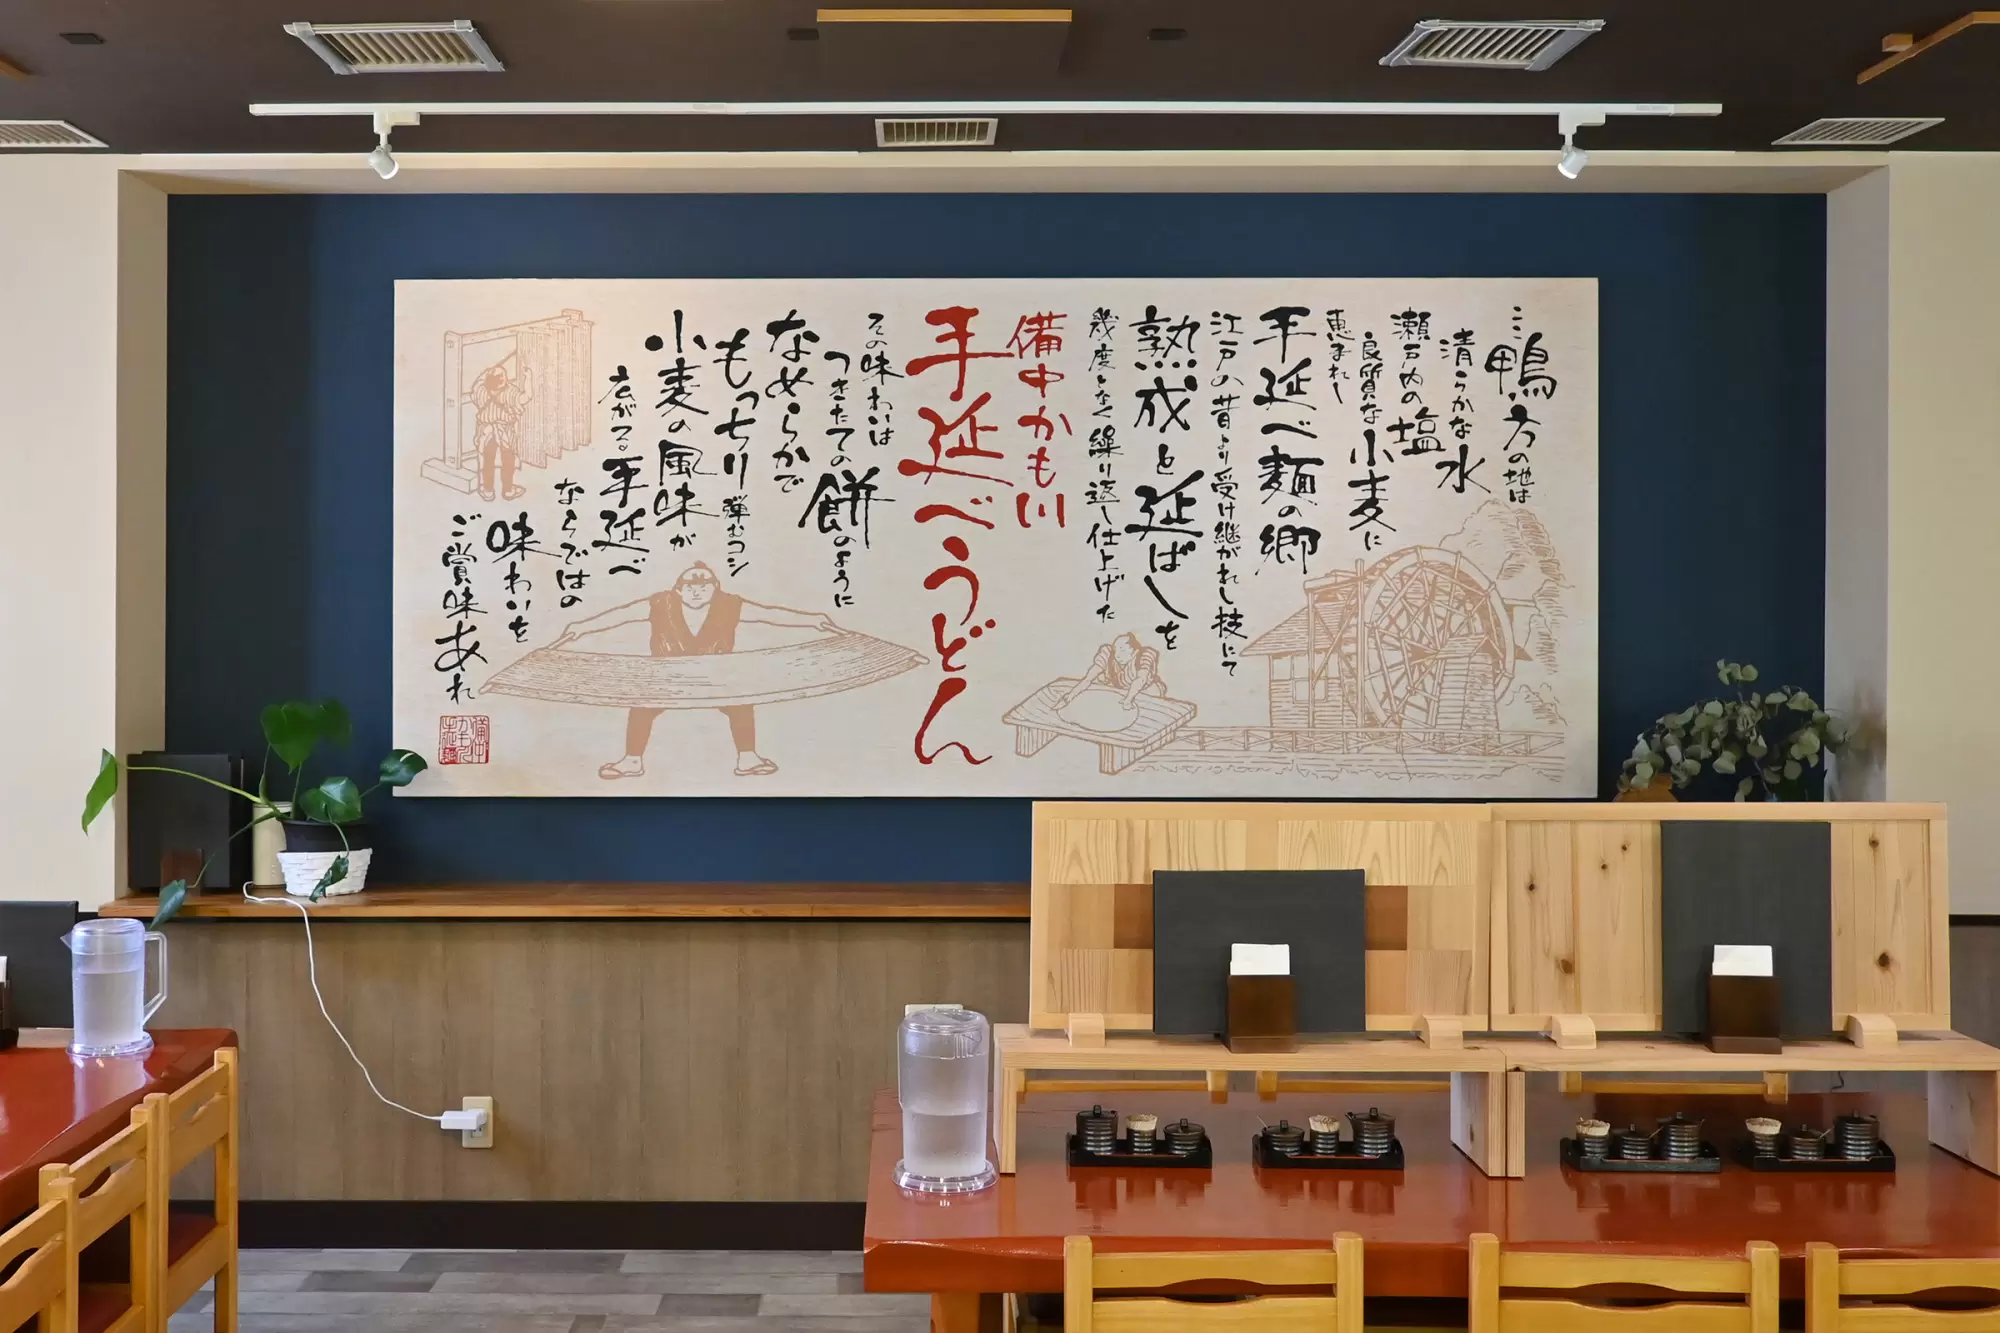 ここ鴨方の地は
清らかな水
瀬戸内の塩
良質な小麦に
恵まれし
手延べ麺の郷
江戸の昔より受け継がれし技にて
熟成と延ばしを
幾度となく繰り返し仕上げた
備中かも川
手延べうどん
その味わいは
つきたての餅のように
なめらかで
もっちり弾むコシ
小麦の風味が
広がる手延べ
ならではの
味わいを
ご賞味あれ